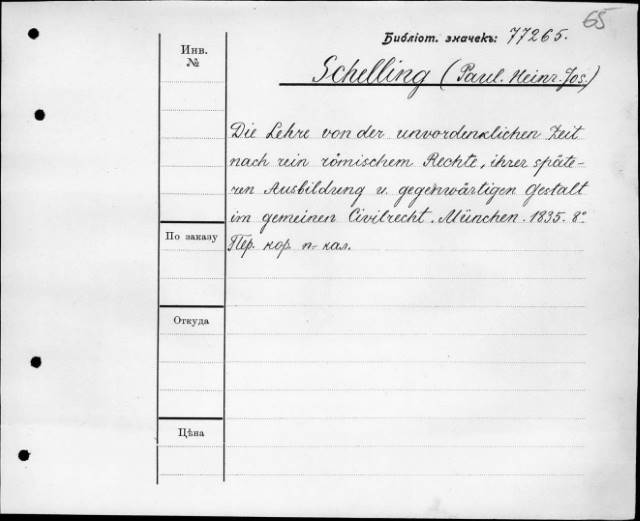 65
Библіот. значекъ: 77265.
Инв.
№
Schelling (Paul. Heinr. Jos.)
Die Lehre von der unvordenklichen Zeit
nach rein römischem Rechte, ihrer späte-
ren Ausbildung u. gegenwärtigen Gestalt
im gemeinen Civilrecht. München. 1835. 8°
По заказу
Пер. кор. п- кал.
Откуда
Цѣна